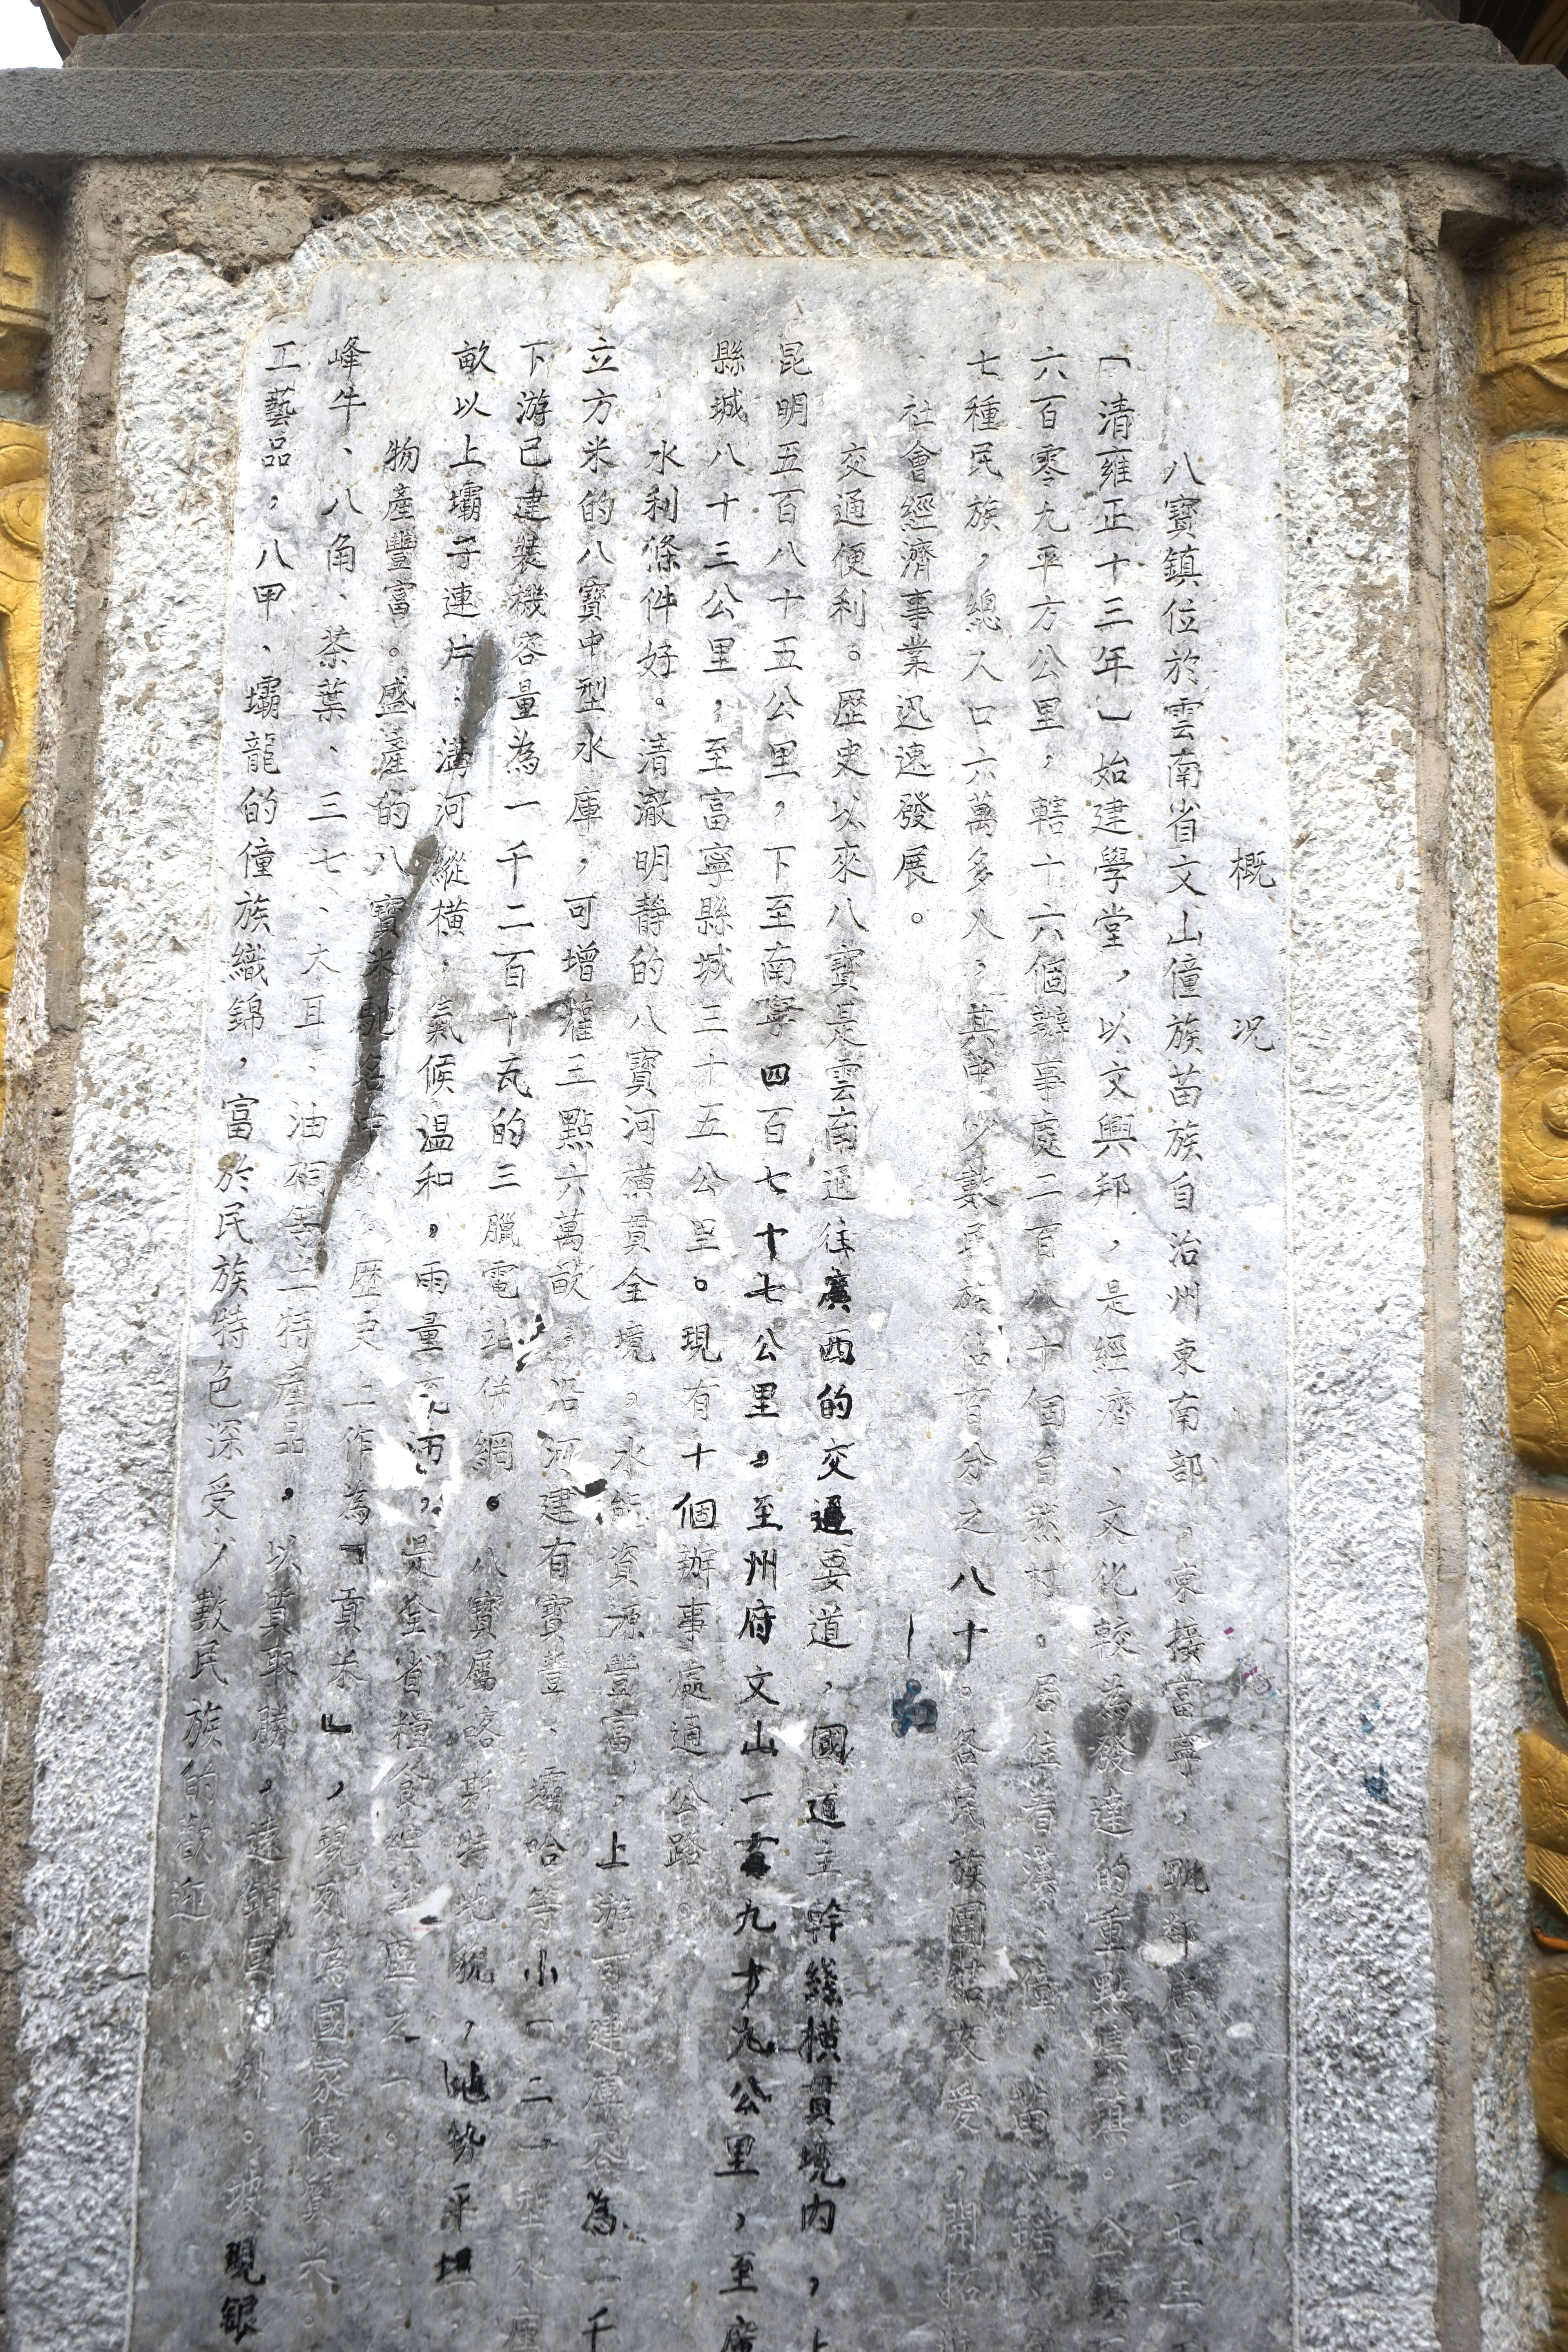 概況
八寶鎮位於雲南省文山僮族苗族自治州東南部，東接富寧，毗鄰廣西。一七三
（清雍正十三年）始建學堂，以文興邦，是經濟、文化較為發達的重點集鎮。全鎮
六百零九平方公里，轄十六個辦事處二百八十個自然村。居住着漢、僮、苗、瑤
七種民族，總人口六萬多人，其中少數民族佔百分之八十。各民族團結友愛，開拓
社會經濟事業迅速發展。
交通便利。歷史以來八寶是雲南通往廣西的交通要道，國道主幹綫橫貫境内，上
昆明五百八十五公里，下至南寧四百七十七公里。至州府文山一百九十九公里，至廣
縣城八十三公里，至富寧縣城三十五公里。現有十個辦事處通公路。
水利條件好。清澈明静的八寶河橫貫全境。水能資源豐富，上游可建庫容為二千
立方米的八寶中型水庫，可增灌三點六萬畝。沿河建有寶豐、壩哈等小一二型水庫
下游已建裝機容量為一千二百千瓦的三臘電站併網。八寶屬喀斯特地貌，地勢平坦
畝以上壩子連片，溝河縱橫，氣候温和，雨量充沛，是全省糧食 區之一。
物產豐富。盛產的八寶米馳名中外，歷史上作為「貢米」，現列為國家優質米。
峰牛、八角、茶葉、三七、木耳、油桐等土特產品，以質取勝，遠銷國内外。坡現銀
工藝品，八甲、壩龍的僮族織錦，富於民族特色深受少數民族的歡迎。